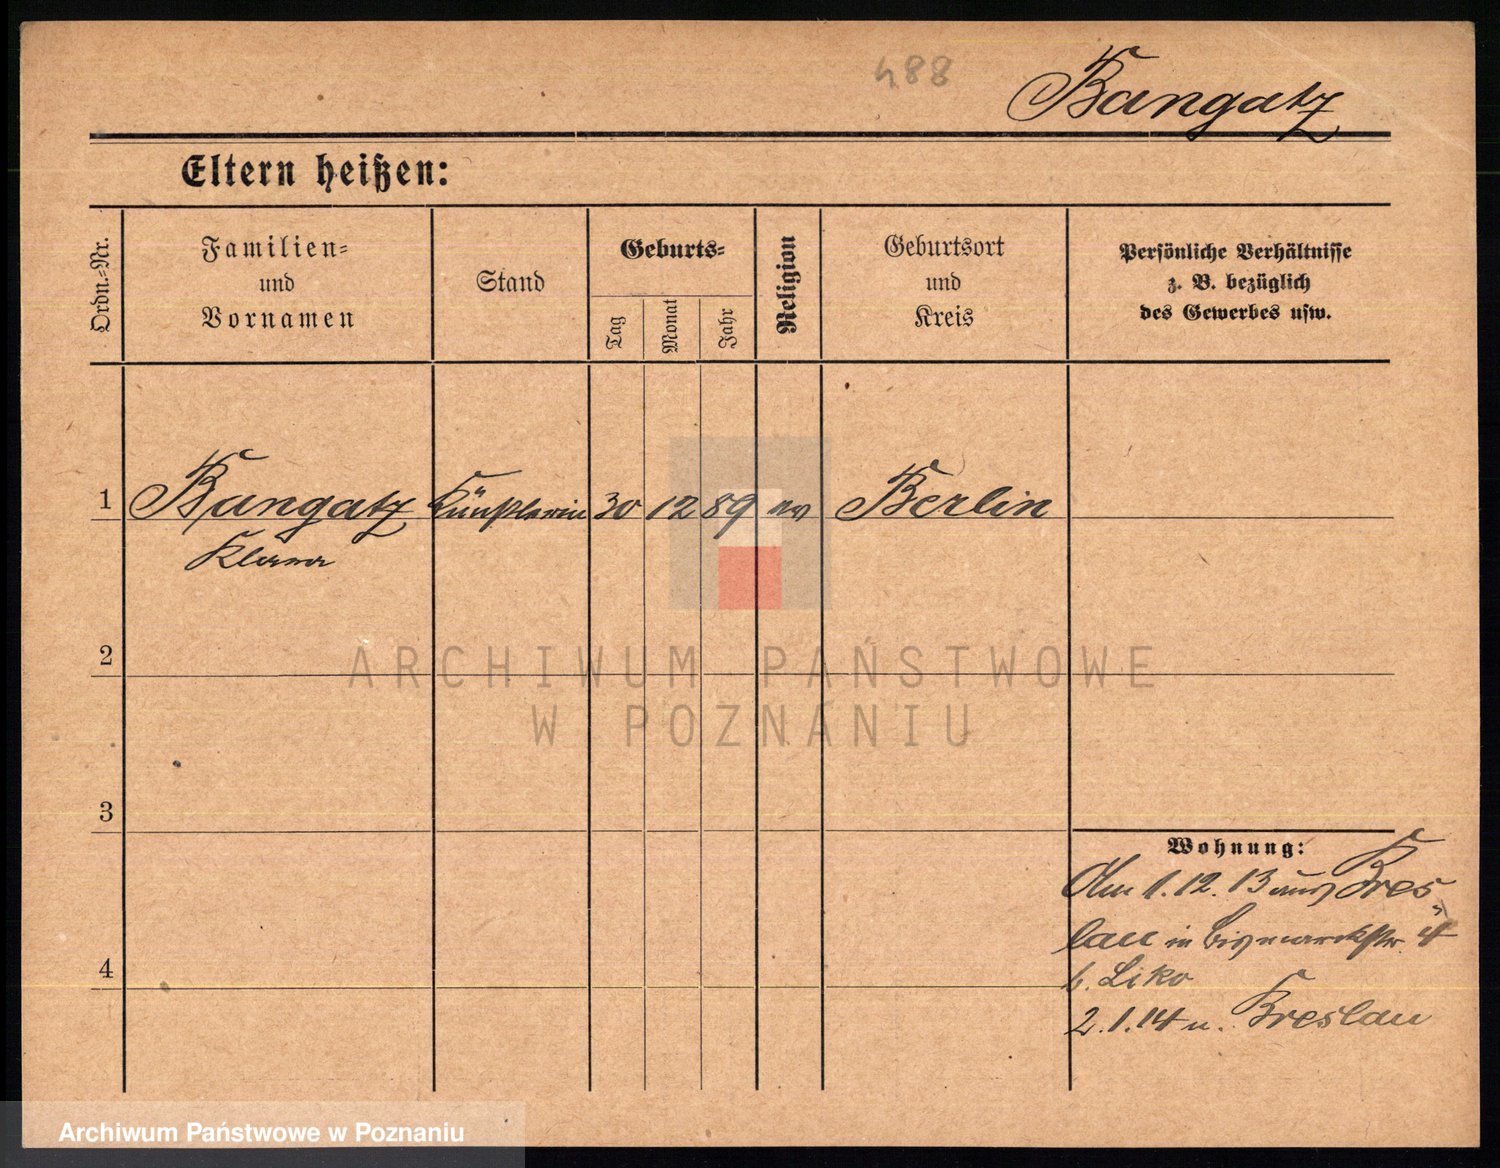 488
Bangatz
Eltern heißen:
Ordn.-Nr.
Familien-
und
Vornamen
Stand
Geburts-
Tag
Monat
Jahr
Religion
Geburtsort
und
Kreis
Persönliche Verhältnisse
z. B. bezüglich
des Gewerbes usw.
1 Bangatz Künstlerin 30 12 89 ev Berlin
Klara
2
3
4
Wohnung:
Am 1.12.13 aus Bres
lau in Bismarckstr. 4
b. Liko
2.1.14 n. Breslau
ARCHIWUM PAŃSTWOWE
W POZNANIU
Archiwum Państwowe w Poznaniu